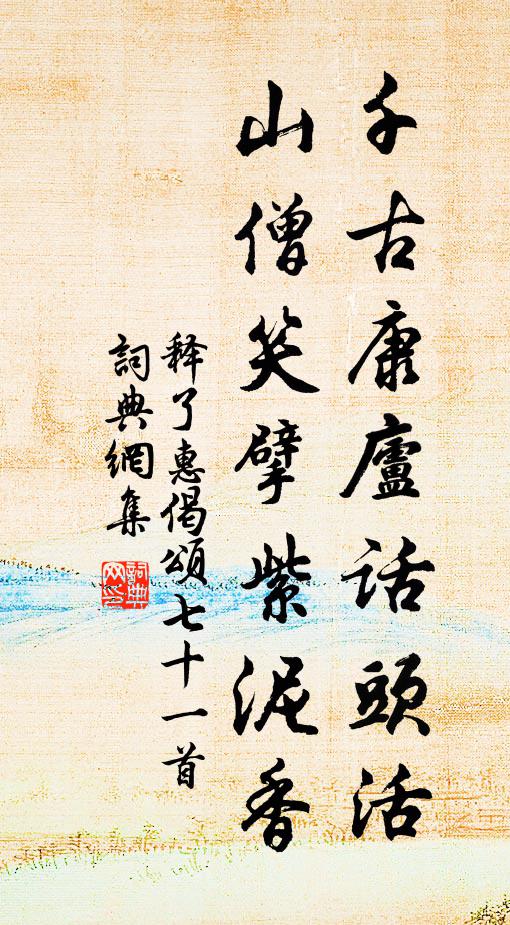 千古康廬話頭活
山僧笑擘紫泥香
释了惠偈頌七十一首
詞典網集
詞典网印